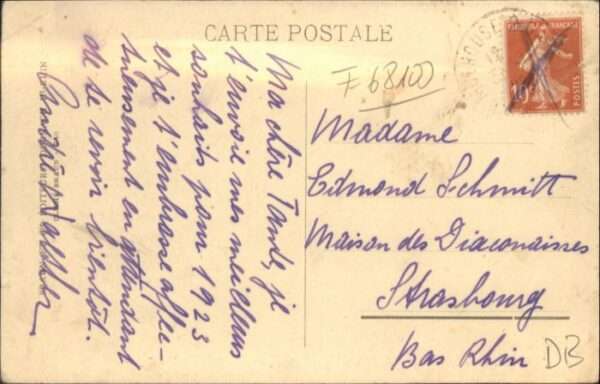 CARTE POSTALE
Ma chère Tante, je
t'envoie mes meilleurs
souhaits pour 1923
et je t'embrasse affec-
tueusement en attendant
de te revoir bientôt.
F 68100
Madame
Edmond Schmitt
Maison des Diaconaisses
Strasbourg
Bas Rhin
DB
FRANÇAISE
10
POSTES